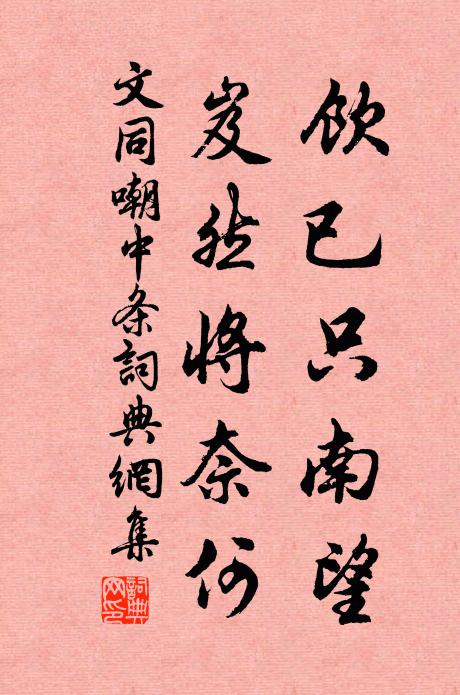 飲已只南望
岌然將奈何
文同嘲中条詞典網集
詞典网印